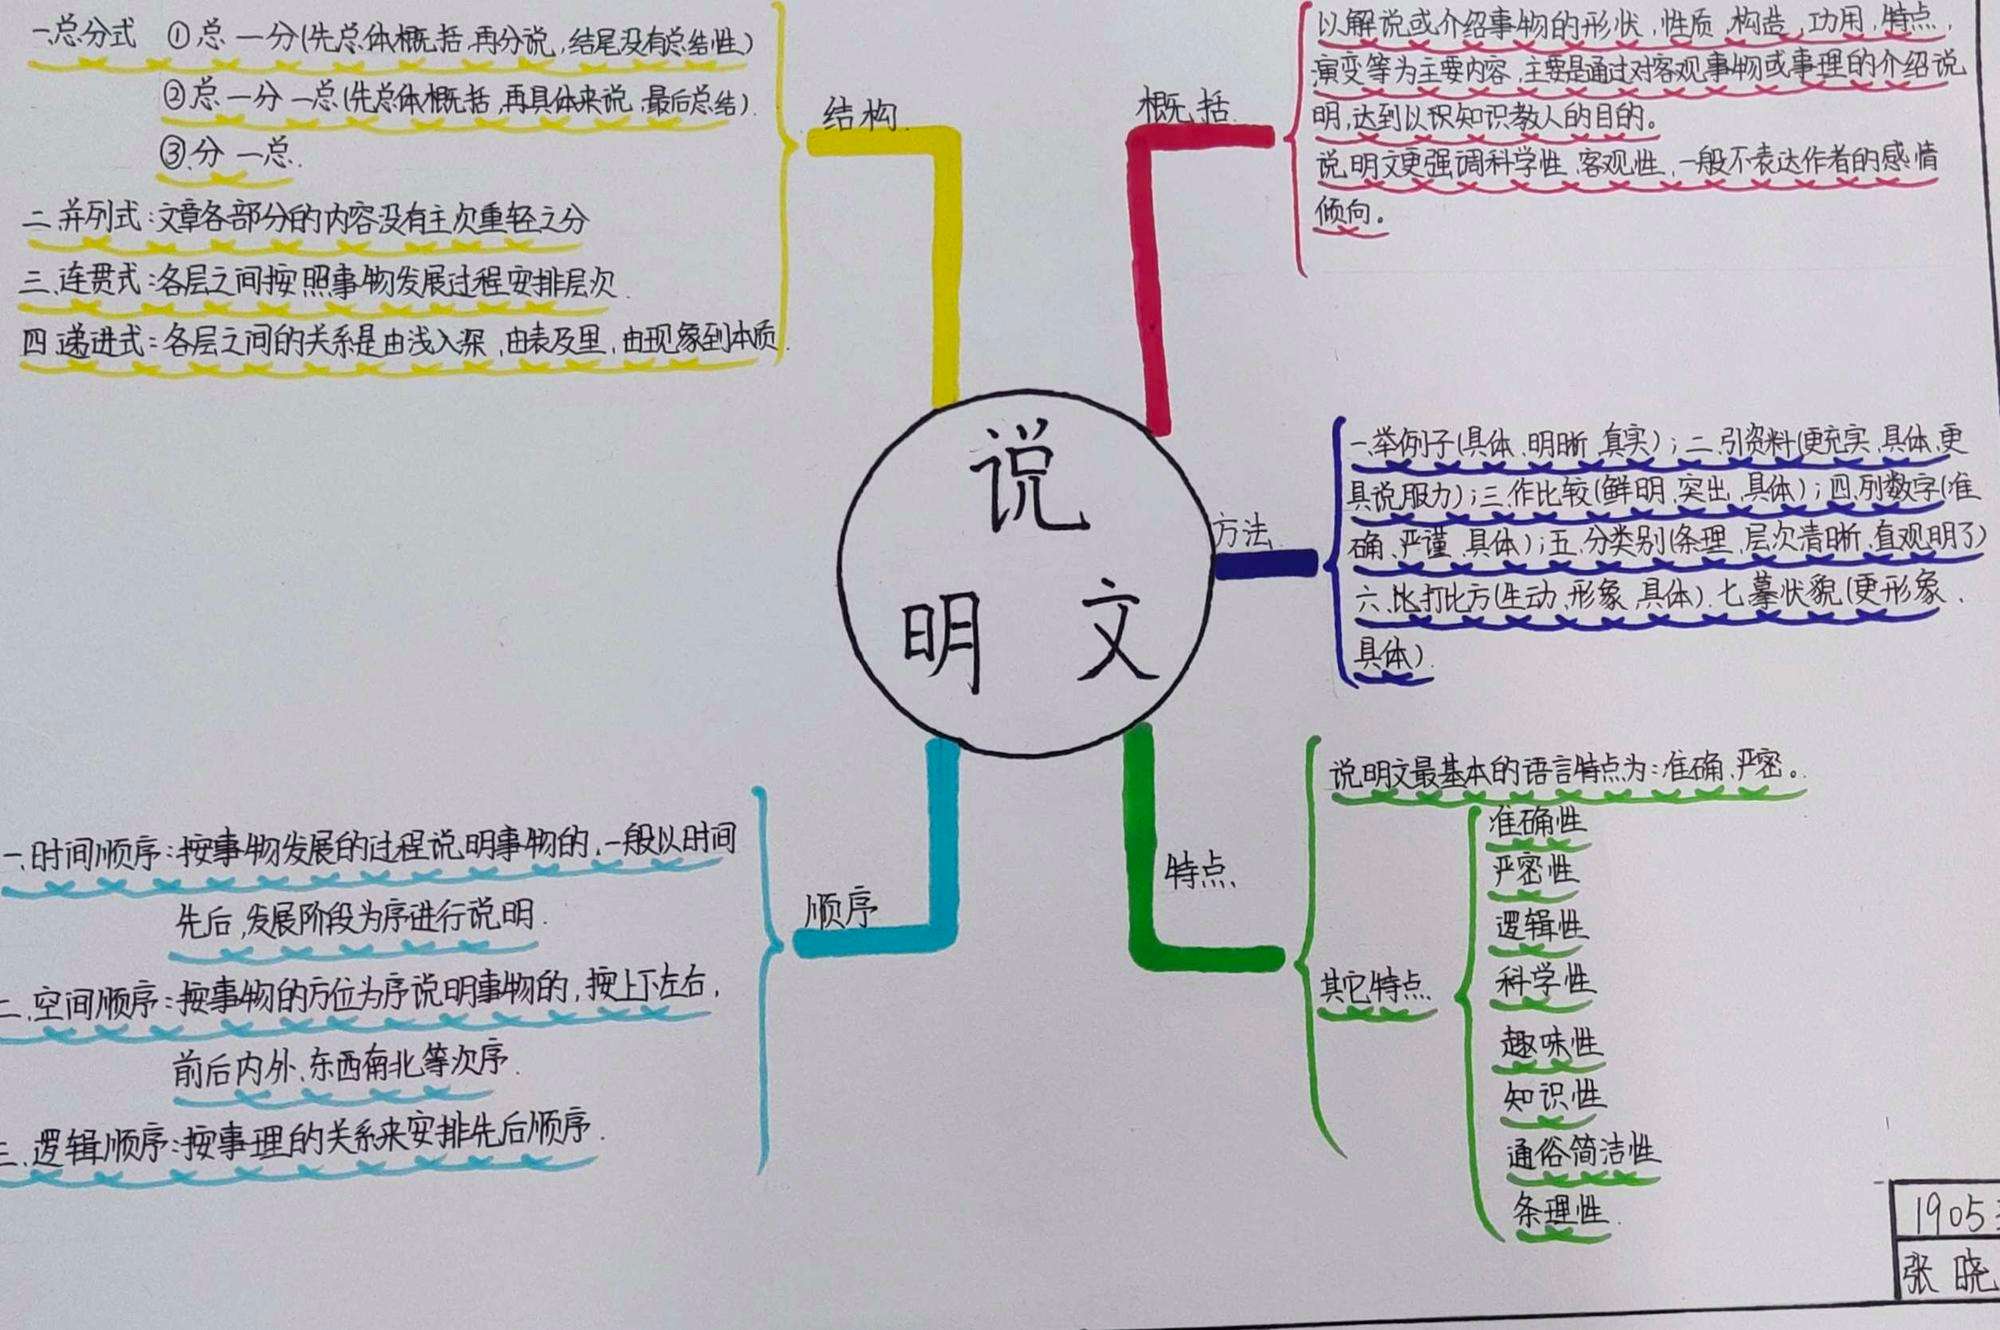 说
明 文
结构
一.总分式 ①总一分(先总体概括,再分说,结尾没有总结性)
②总一分一总(先总体概括,再具体来说,最后总结).
③.分一总.
二.并列式:文章各部分的内容没有主次重轻之分
三.连贯式:各层之间按照事物发展过程安排层次.
四.递进式:各层之间的关系是由浅入深、由表及里,由现象到本质.
概括
以解说或介绍事物的形状,性质,构造,功用,特点,
演变等为主要内容,主要是通过对客观事物或事理的介绍说
明,达到以积知识教人的目的。
说明文更强调科学性、客观性,一般不表达作者的感情
倾向。
方法
一.举例子(具体、明晰、真实);二.引资料(更充实、具体、更
具说服力);三.作比较(鲜明、突出、具体);四.列数字(准
确、严谨、具体);五.分类别(条理、层次清晰、直观明了)
六.比打比方(生动、形象、具体).七.摹状貌(更形象、
具体).
特点
说明文最基本的语言特点为:准确、严密。
其它特点
准确性
严密性
逻辑性
科学性
趣味性
知识性
通俗简洁性
条理性.
顺序
一.时间顺序:按事物发展的过程说明事物的,一般以时间
先后,发展阶段为序进行说明.
二.空间顺序:按事物的方位为序说明事物的,按上下左右,
前后内外、东西南北等次序.
三.逻辑顺序:按事理的关系来安排先后顺序.
1905
张晓